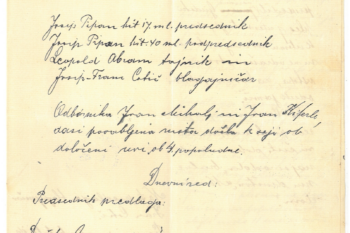 Josip Pipan hit 17. ml. predsednik
Josip Pipan hit. 40 ml. podpredsednik
Leopold Abram tajnik in
Josip Fran Cotič blagajničar
Odbornika Ivan Mihalj in Ivan
dasi povabljena nista došla k seji ob
določeni uri, ob 4. popoludne.
Dnevni red:
Predsednik predlaga: